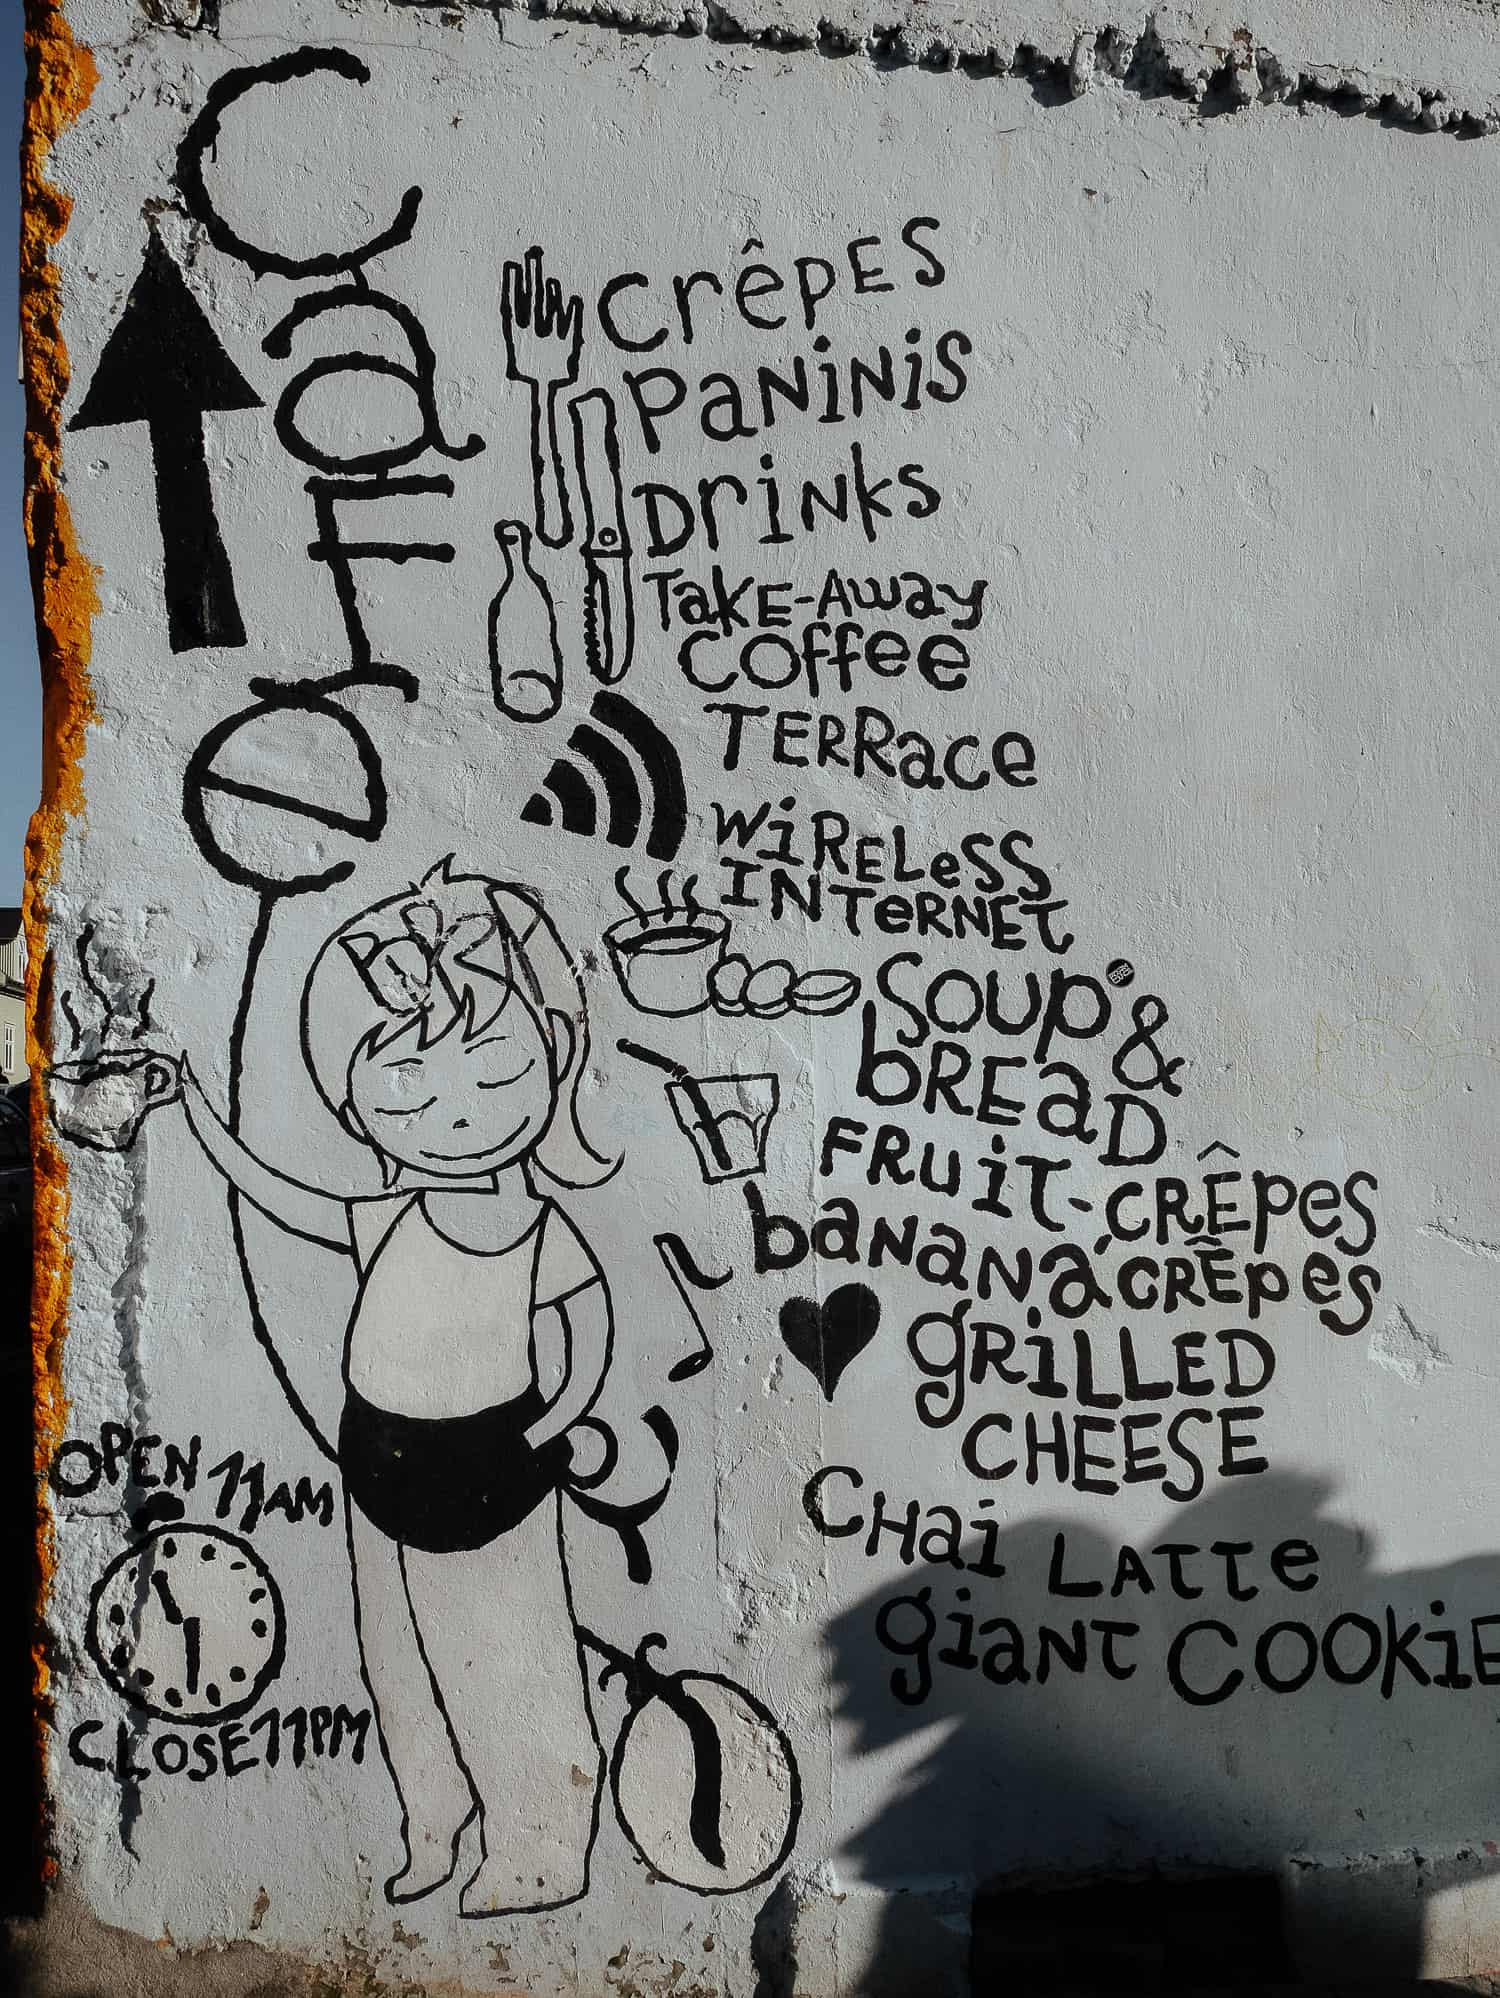 CaFe
CrêpES
PaNiNiS
DriNks
TakE-Away
Coffee
TERRace
WiRELeSS
INTeRNET
Soup &
bREaD
FRuiT-CRÊpeS
baNaNa CRÊpeS
gRiLLED
CHEESE
CHai LATTe
giaNT COOKiE
OPEN 11AM
CLOSE 11PM